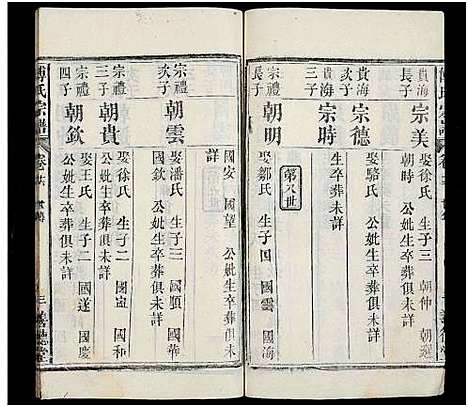 貴海
長子
宗美
娶徐氏 生子三 朝仲
朝時 公妣生卒葬俱未詳
貴海
次子
宗德
娶駱氏 公妣生卒葬俱未詳
貴海
三子
宗時
生卒葬未詳
第八世
宗禮
長子
朝明
娶鄒氏 生子四 國雲 國海
國安 國望 公妣生卒葬俱未
詳
宗禮
次子
朝雲
娶潘氏 生子三 國順 國華
國欽 公妣生卒葬俱未詳
宗禮
三子
朝貴
娶徐氏 生子二 國和
公妣生卒葬俱未詳
宗禮
四子
朝欽
娶王氏 生子二 國遂 國慶
公妣生卒葬俱未詳
傅氏宗譜
卷
三
善德堂